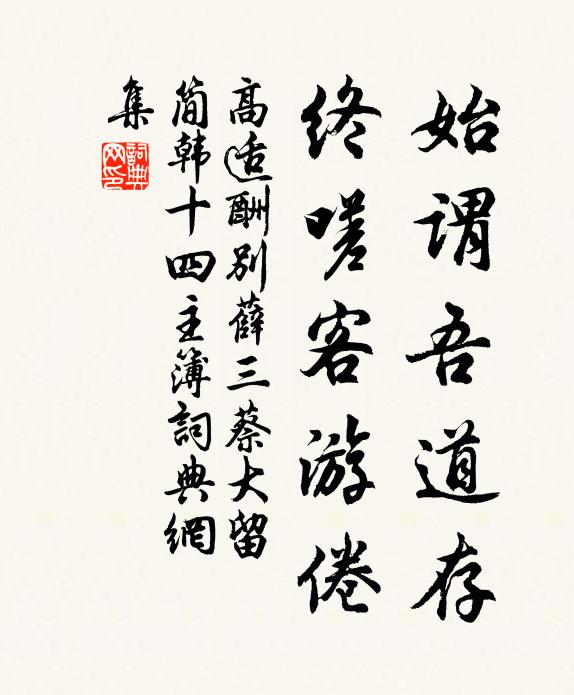 始谓吾道存
终嗟客游倦
高适酬别薛三蔡大留
简韩十四主簿詞典網
集
詞典
网印